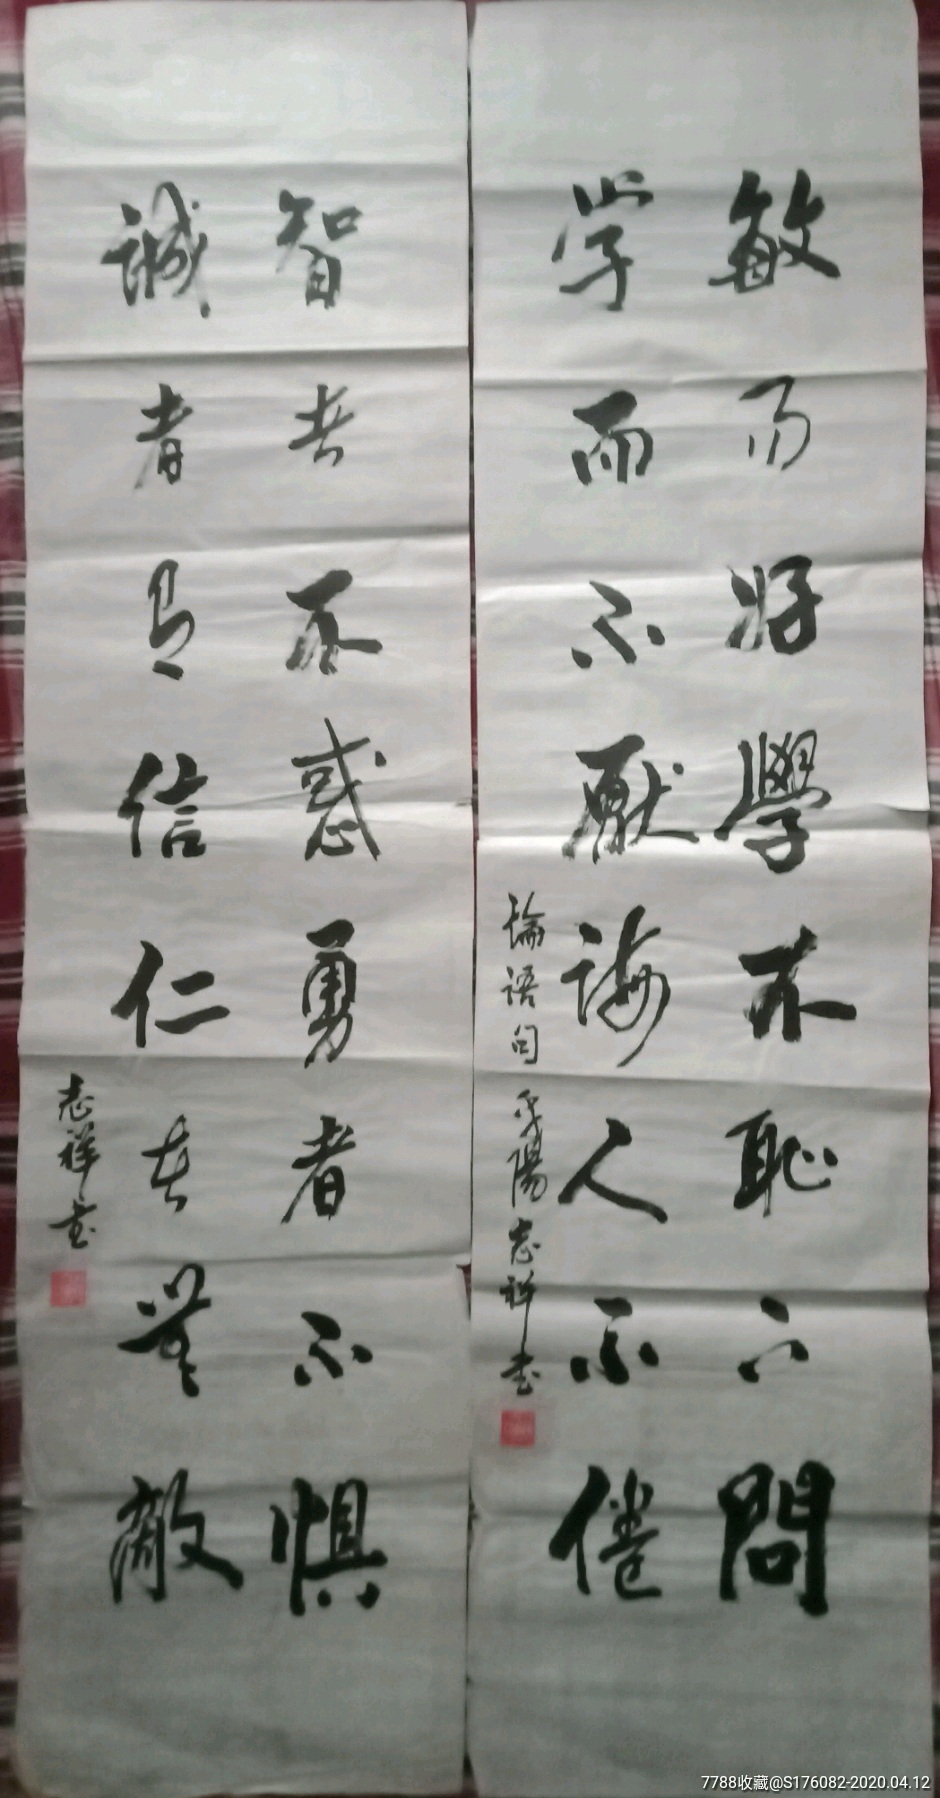 敏而好學不恥下問
学而不厭誨人不倦
論語句 平陽志祥書
智者不惑勇者不懼
誠者信仁者無敵
志祥書
7788收藏@S176082-2020.04.12